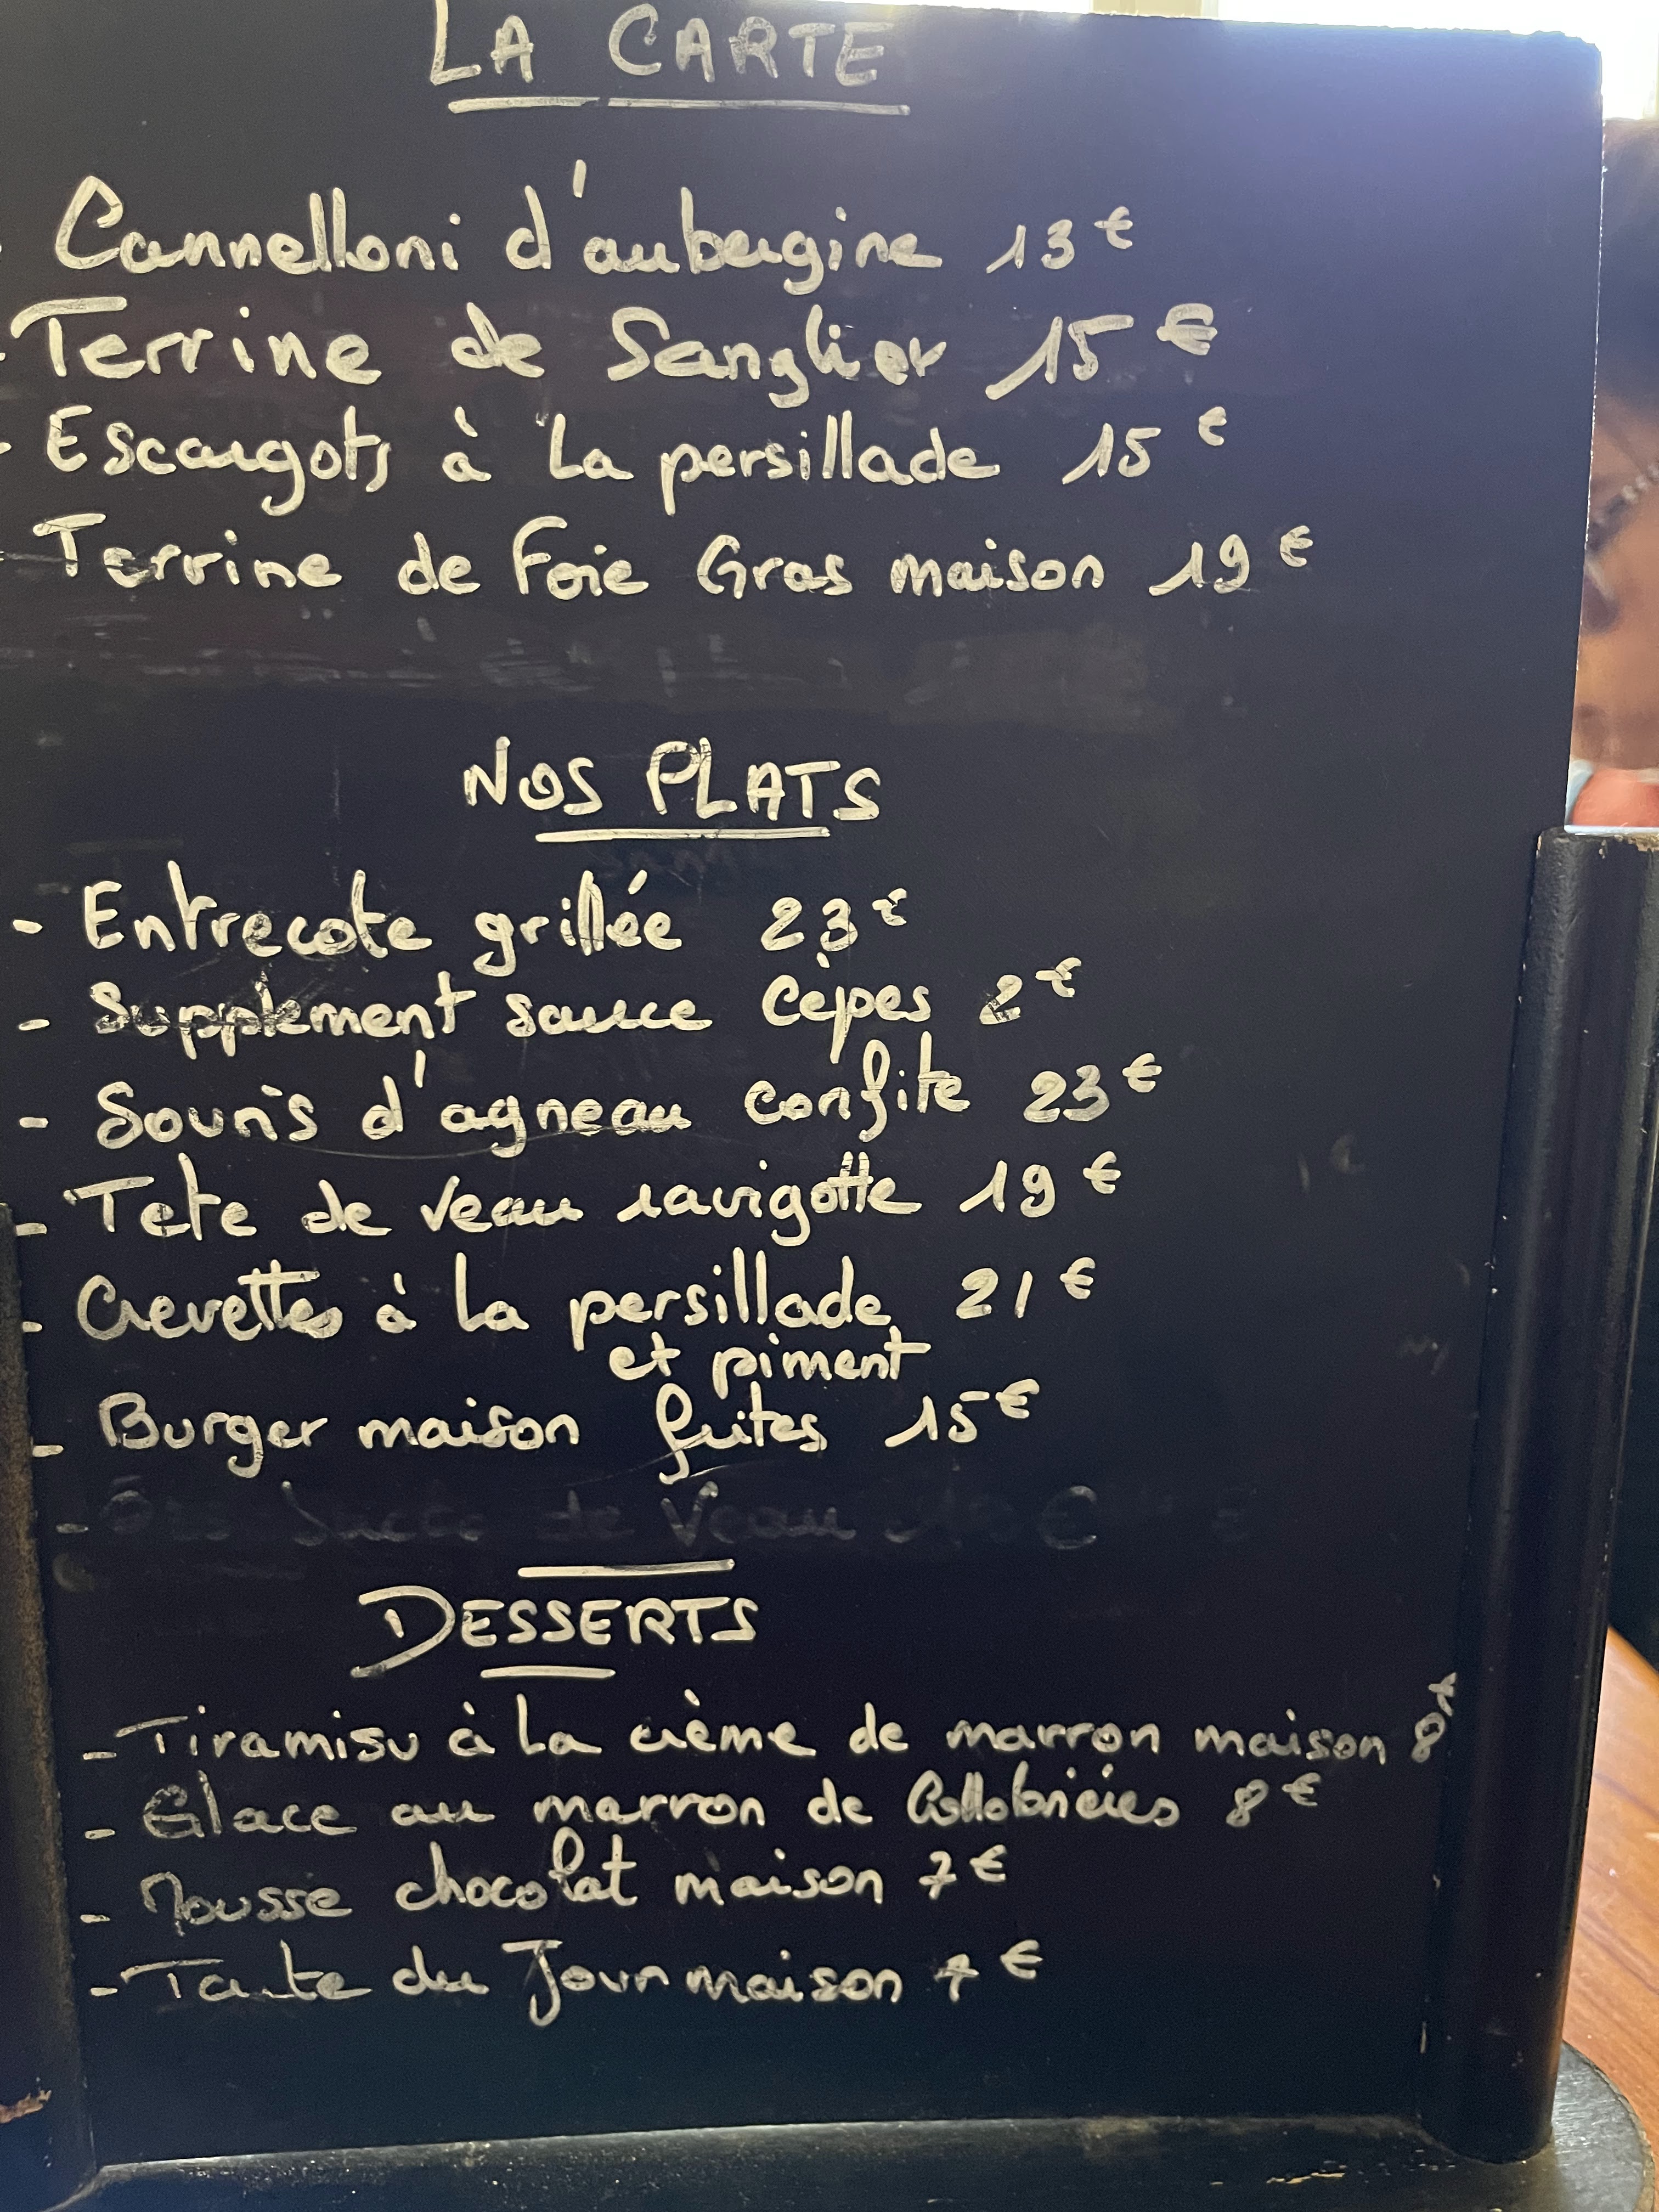 LA CARTE
- Cannelloni d'aubergine 13€
- Terrine de Sanglier 15€
- Escargots à la persillade 15€
- Terrine de Foie Gras maison 19€
NOS PLATS
- Entrecote grillée 23€
- Supplement sauce Cèpes 2€
- Souris d'agneau confite 23€
- Tete de veau ravigotte 19€
- Crevettes à la persillade 21€
et piment
- Burger maison frites 15€
- de Veau €
DESSERTS
- Tiramisu à la crème de marron maison 8€
- Glace au marron de Collobrières 8€
- Mousse chocolat maison 7€
- Tarte du Jour maison 7€